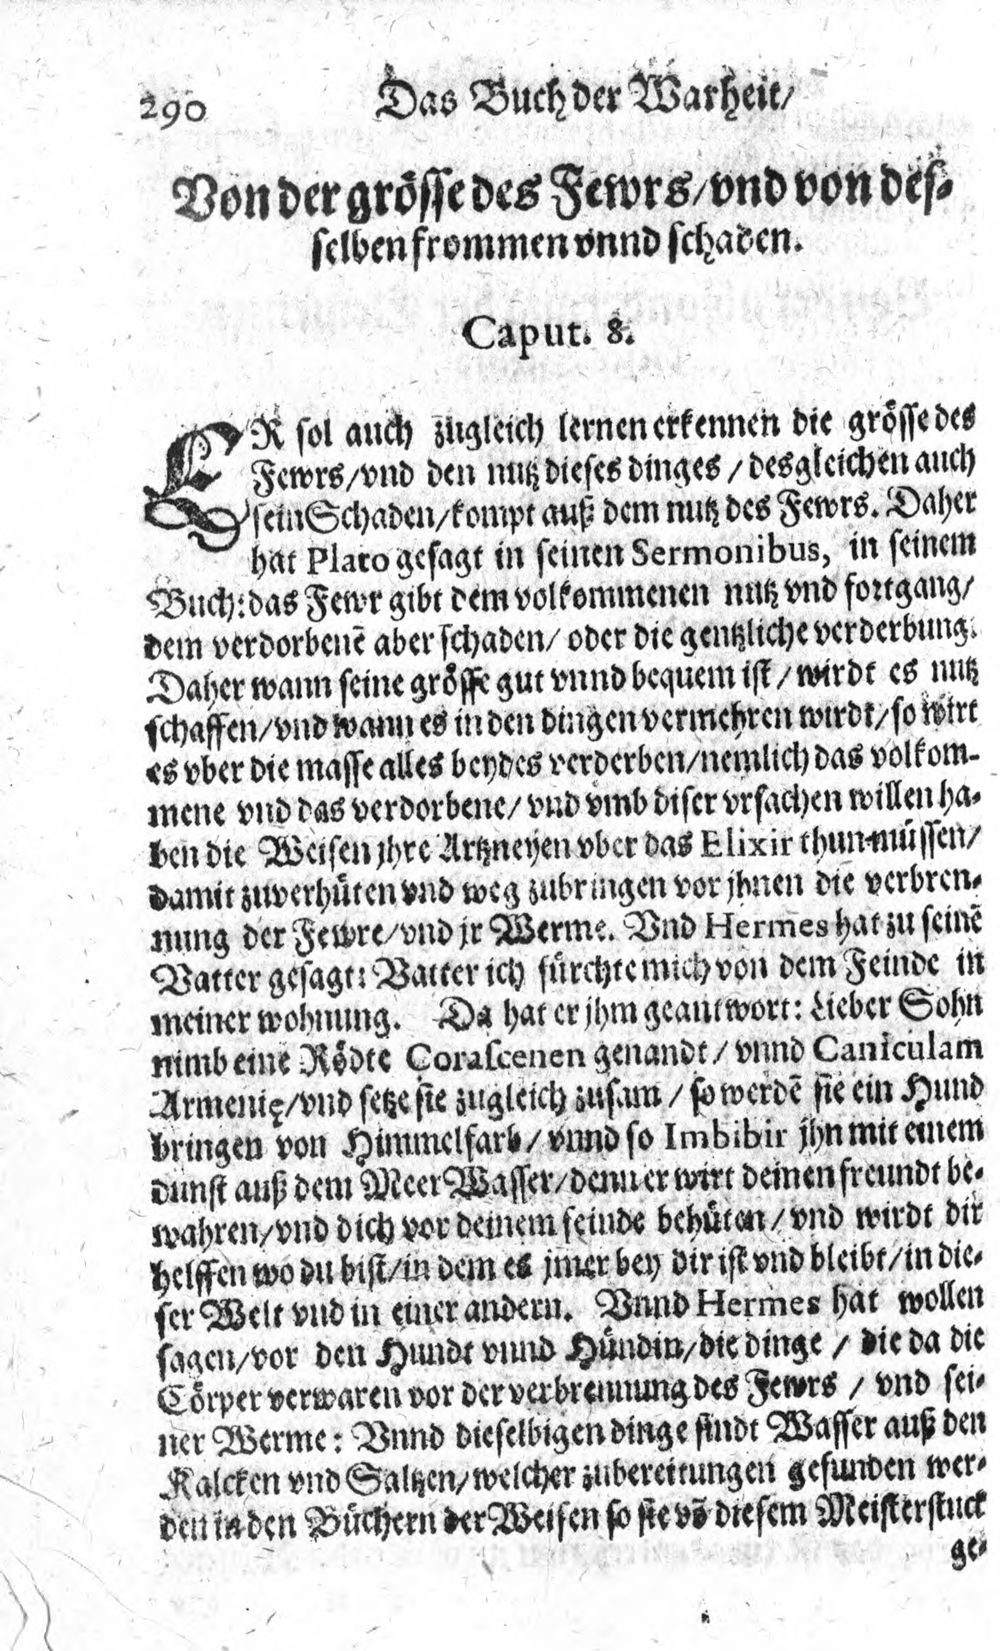 290 Das Buch der Warheit/
Von der grösse des Fewrs/vnd von des-
selben frommen vnnd schaden.
Caput. 8.
ER sol auch zugleich lernen erkennen die grösse des
Fewrs/vnd den nutz dieses dinges/desgleichen auch
sein Schaden/kompt auß dem nutz des Fewrs. Daher
hat Plato gesagt in seinen Sermonibus, in seinem
Buch: das Fewr gibt dem volkommenen nutz vnd fortgang/
dem verdorbenē aber schaden/ oder die gentzliche verderbung.
Daher wann seine grösse gut vnnd bequem ist/wirdt es nutz
schaffen/vnd wann es in den dingen vermehren wirdt/so wirt
es vber die masse alles beydes verderben/nemlich das volkom-
mene vnd das verdorbene/ vnd vmb diser vrsachen willen ha-
ben die Weisen jhre Artzneyen vber das Elixir thun müssen/
damit zuverhüten vnd weg zubringen vor jhnen die verbren-
nung der Fewre/vnd jr Werme. Vnd Hermes hat zu seinē
Vatter gesagt: Vatter ich fürchte mich von dem Feinde in
meiner wohnung. Da hat er jhm geantwort: Lieber Sohn
nimb eine Rödte Corascenen genandt/ vnnd Caniculam
Armenię/vnd setze sie zugleich zusam/ so werdē sie ein Hund
bringen von Himmelfarb/ vnnd so Imbibir jhn mit einem
dunst auß dem Meer Wasser/denn er wirt deinen freundt be-
wahren/vnd dich vor deinem feinde behüten/vnd wirdt dir
helffen wo du bist/in dem es jmer bey dir ist vnd bleibt/in die-
ser Welt vnd in einer andern. Vnnd Hermes hat wollen
sagen/vor den Hundt vnnd Hündin/die dinge/ die da die
Cörper verwaren vor der verbrennung des Fewrs/ vnd sei-
ner Werme: Vnnd dieselbigen dinge sindt Wasser auß den
Kalcken vnd Saltzen/welcher zubereitungen gefunden wer-
den in den Büchern der Weisen so sie vō diesem Meisterstuck
ge-